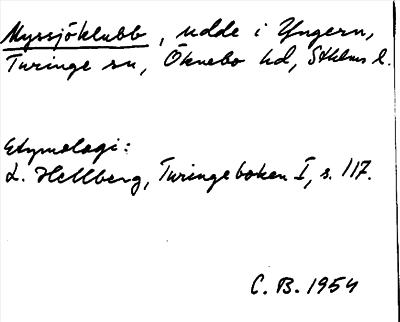 Myssjöklubb, udde i Yngern,
Turinge sn, Öknebo hd, Sthlms l.
Etymologi:
L. Hellberg, Turingeboken I, s. 117.
C. B. 1954